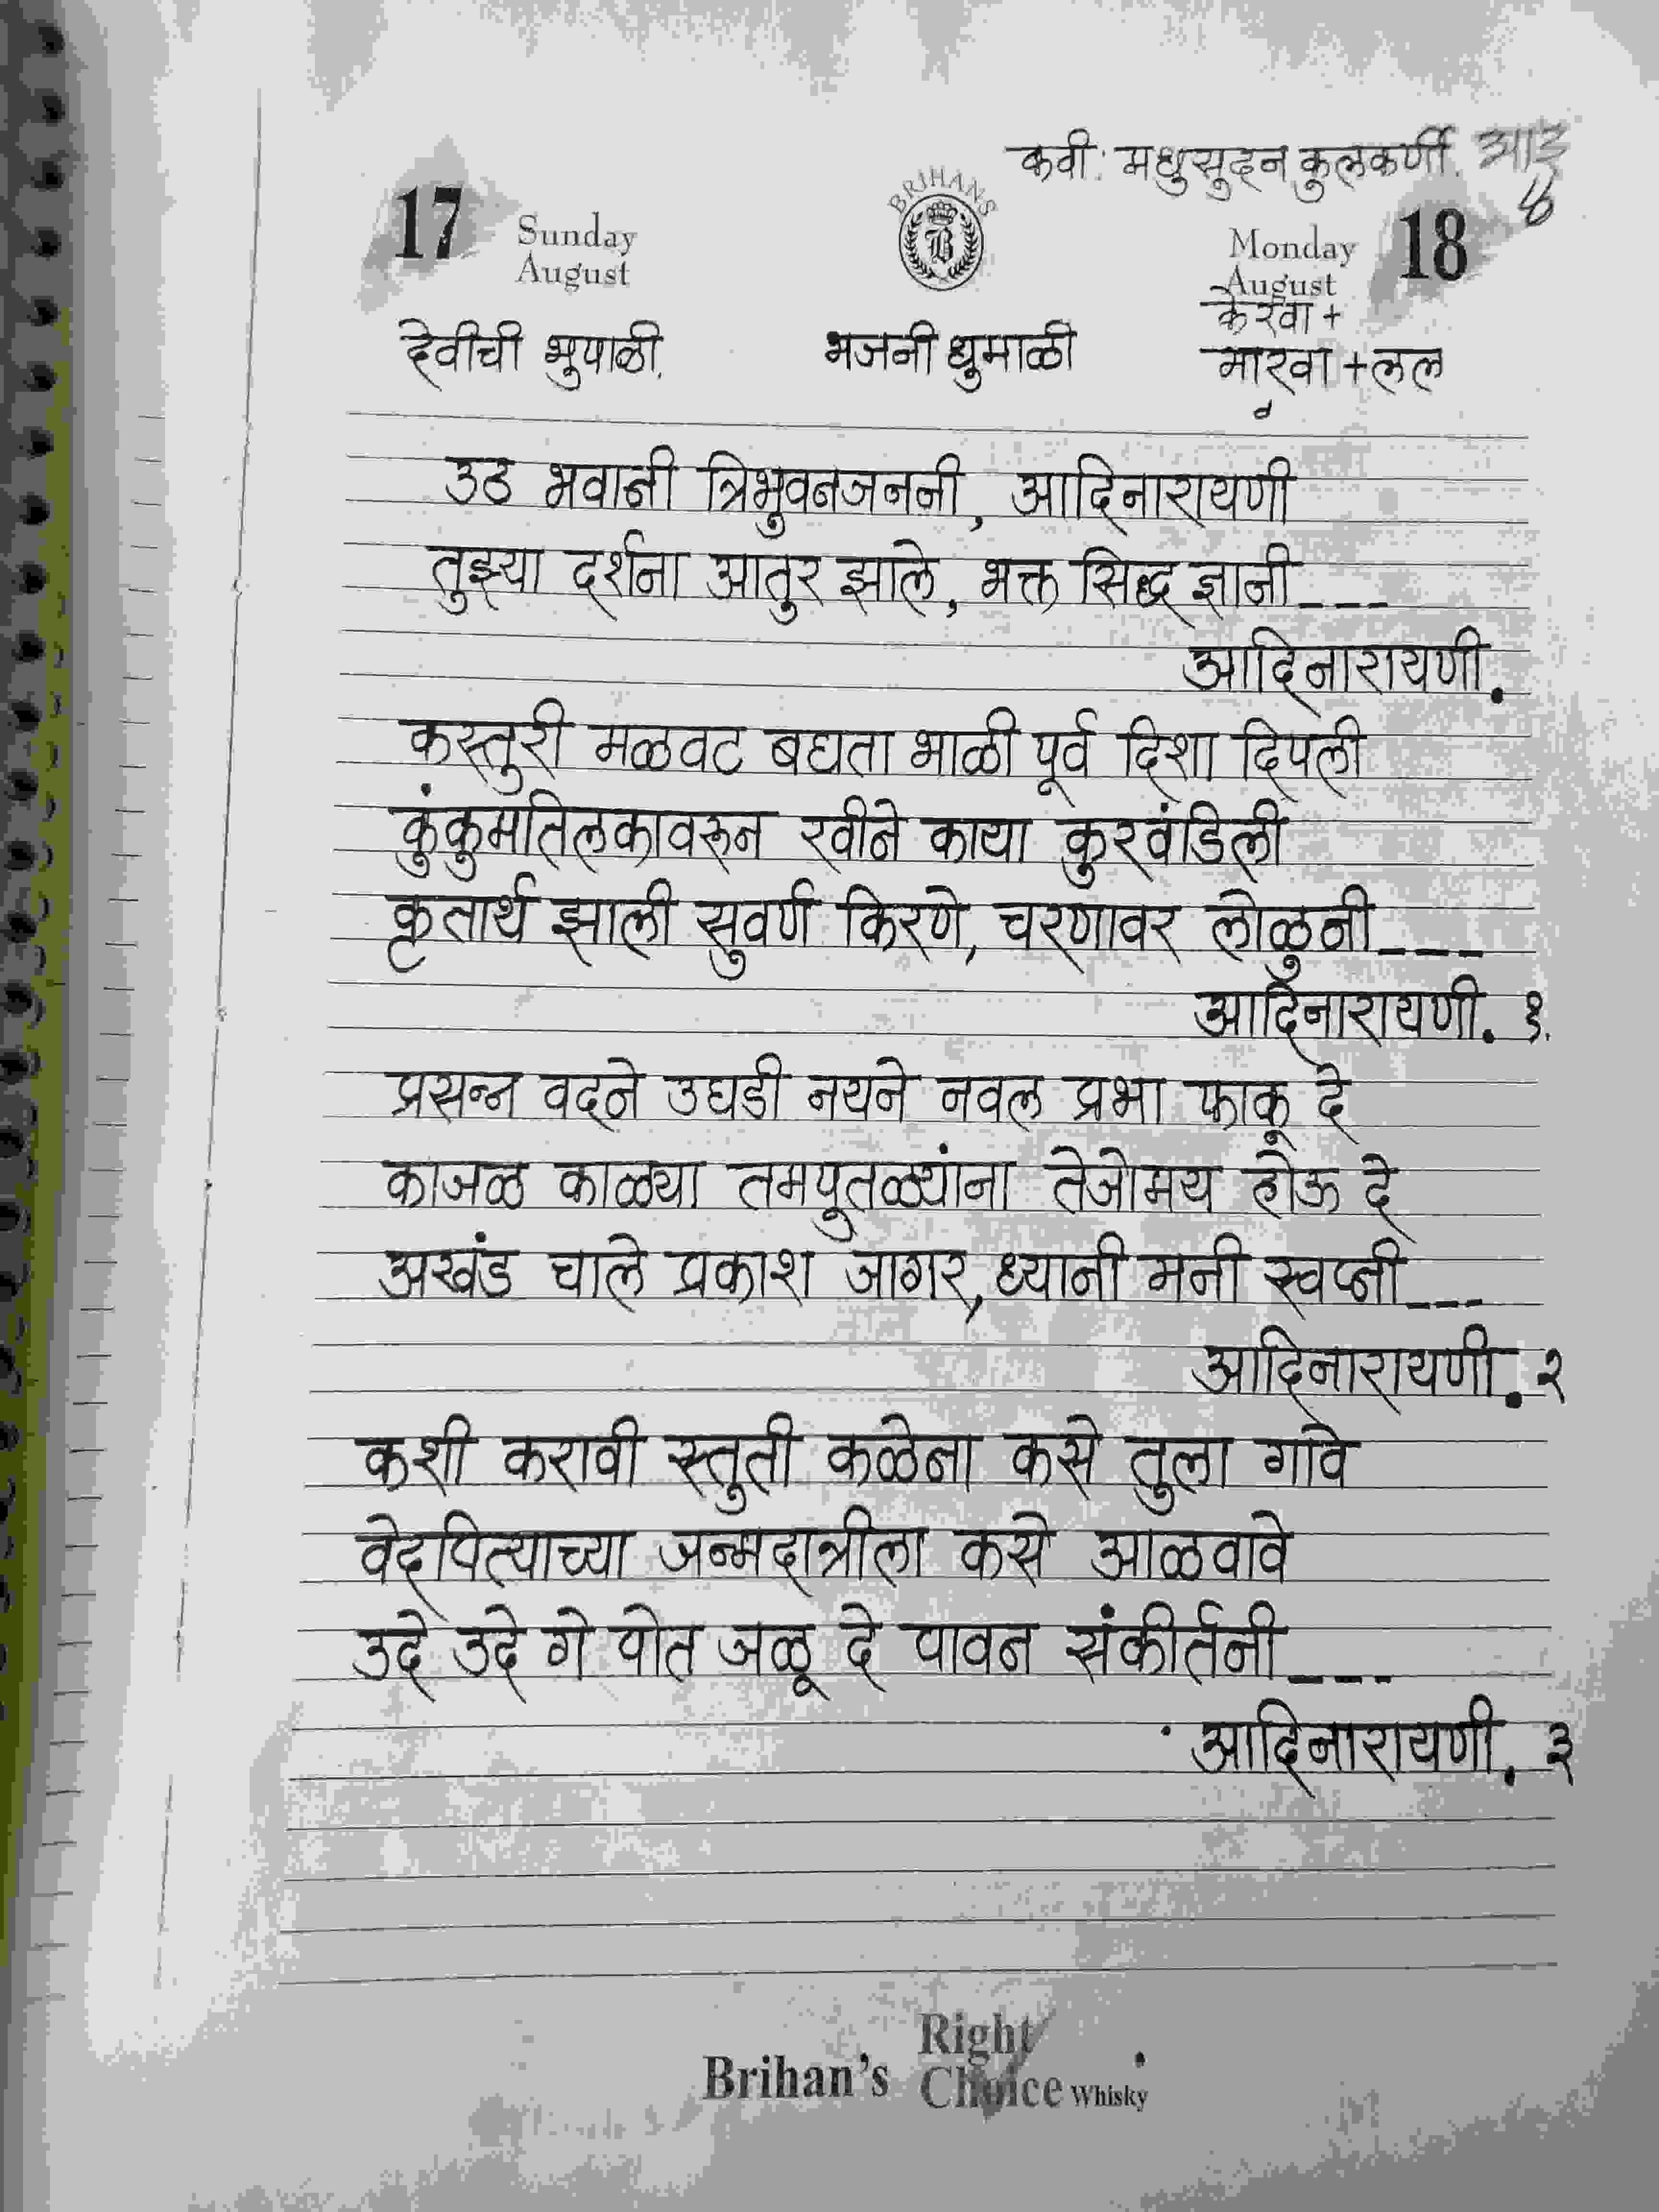 कवी: मधुसुदन कुलकर्णी.
17 Sunday August
BRIHANS
B
Monday August 18
केरवा +
देवीची भुपाळी. भजनी धुमाळी मारवा + लल
उठ भवानी त्रिभुवनजननी, आदिनारायणी
तुझ्या दर्शना आतुर झाले, भक्त सिद्ध ज्ञानी---
आदिनारायणी.
कस्तुरी मळवट बघता भाळी पूर्व दिशा दिपली
कुंकुमतिलकावरून रवीने काया कुरवंडिली
कृतार्थ झाली सुवर्ण किरणे, चरणावर लोळुनी---
आदिनारायणी. १.
प्रसन्न वदने उघडी नयने नवल प्रभा फाकू दे
काजळ काळ्या तमपुतळ्यांना तेजोमय होऊ दे
अखंड चाले प्रकाश जागर, ध्यानी मनी स्वप्नी---
आदिनारायणी. २
कशी करावी स्तुती कळेना कसे तुला गावे
वेदपित्याच्या जन्मदात्रीला कसे आळवावे
उदे उदे गे पोत जळू दे पावन संकीर्तनी---
आदिनारायणी. ३
Brihan's Right Choice Whisky